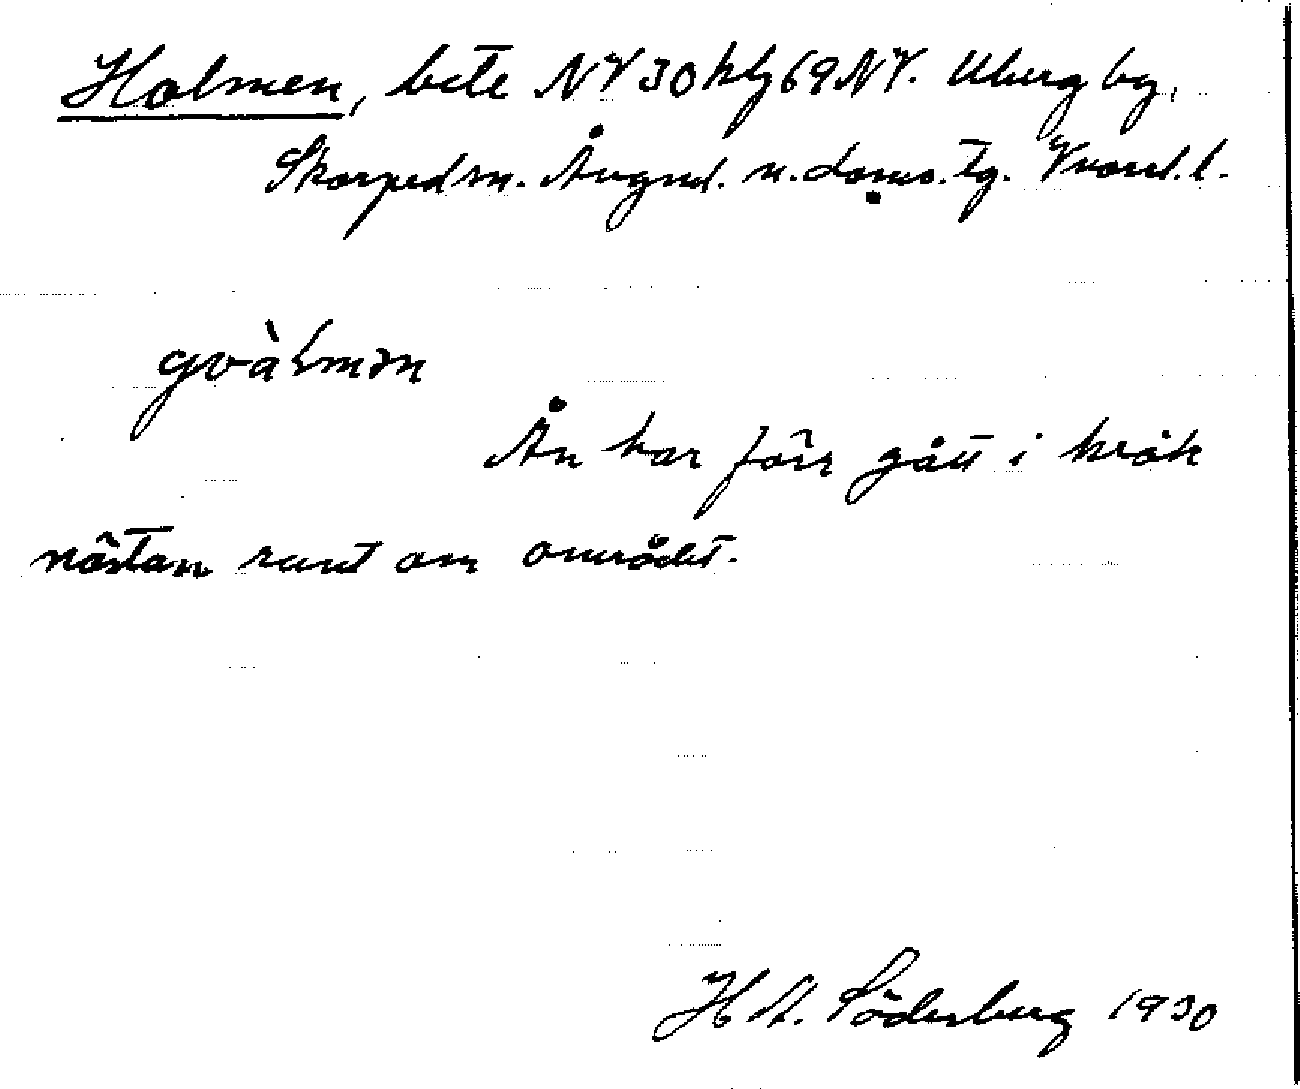 Holmen, bete NV 30 hfg 69 NV. Uberg by,
Skorped sn. Ångml. n. doms. tg. Vnorrl. l.
gvàɫmən
Ån har förr gått i krök
nästan runt om området.
H A. Söderberg 1930